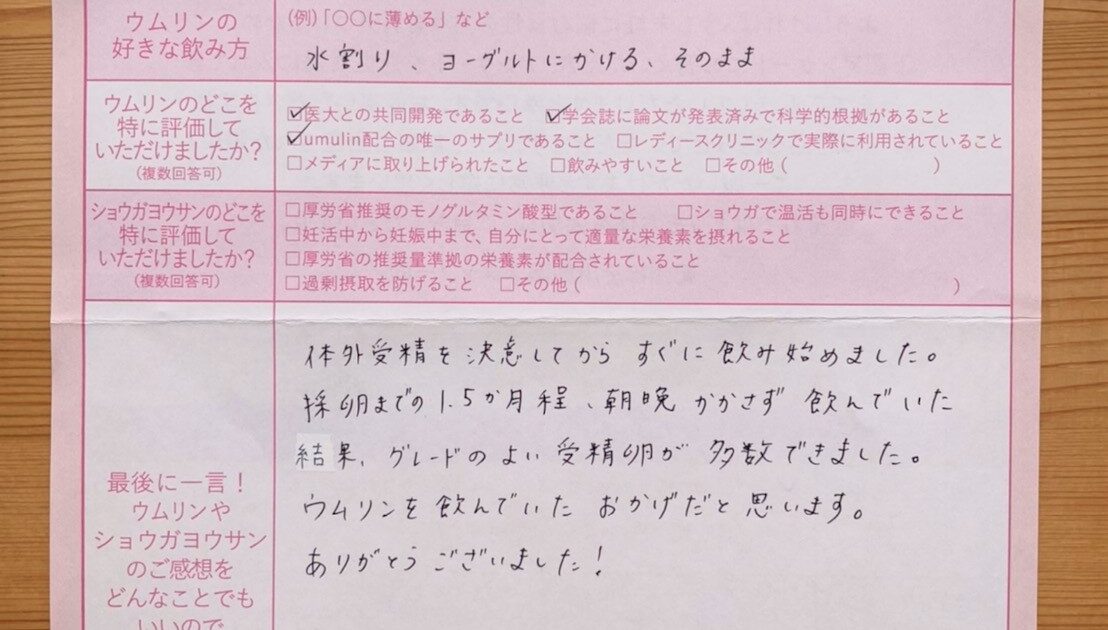 ウムリンの
好きな飲み方
(例)「〇〇に薄める」など
水割り、ヨーグルトにかける、そのまま
ウムリンのどこを
特に評価して
いただけましたか?
(複数回答可)
☑医大との共同開発であること ☑学会誌に論文が発表済みで科学的根拠があること
☑umulin配合の唯一のサプリであること □レディースクリニックで実際に利用されていること
□メディアに取り上げられたこと □飲みやすいこと □その他( )
ショウガヨウサンのどこを
特に評価して
いただけましたか?
(複数回答可)
□厚労省推奨のモノグルタミン酸型であること □ショウガで温活も同時にできること
□妊活中から妊娠中まで、自分にとって適量な栄養素を摂れること
□厚労省の推奨量準拠の栄養素が配合されていること
□過剰摂取を防げること □その他( )
最後に一言!
ウムリンや
ショウガヨウサン
のご感想を
どんなことでも
いいので
体外受精を決意してからすぐに飲み始めました。
採卵までの1.5か月程、朝晩かかさず飲んでいた
結果、グレードのよい受精卵が多数できました。
ウムリンを飲んでいたおかげだと思います。
ありがとうございました!